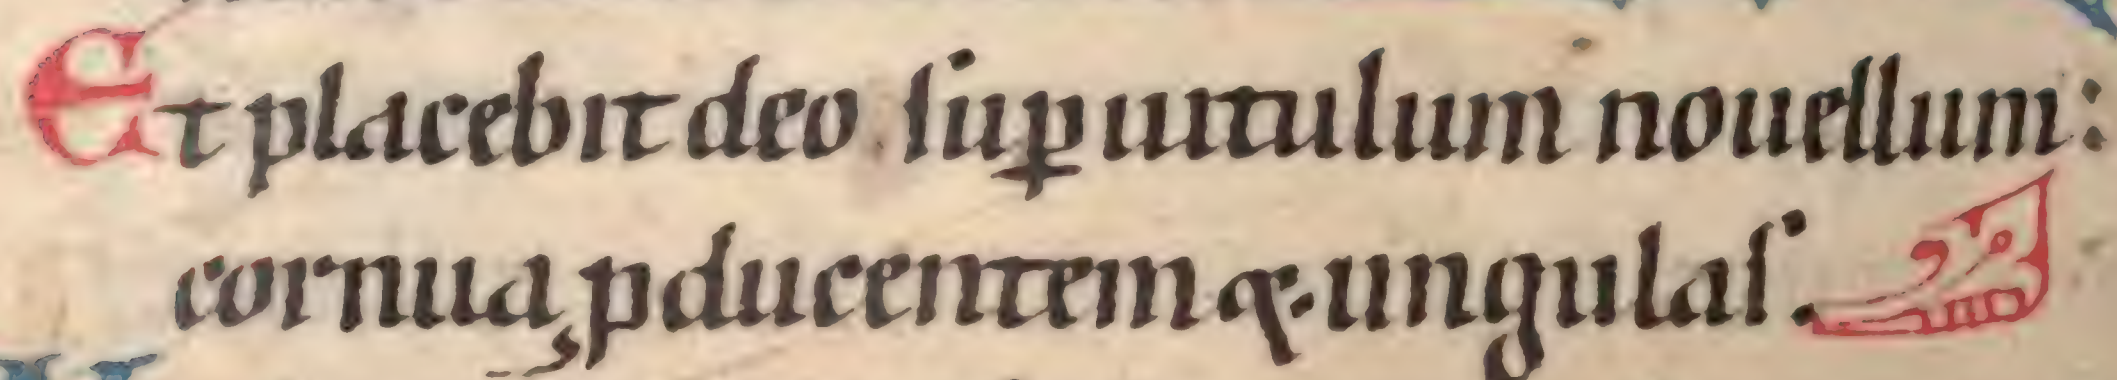 Et placebit deo suꝑ uitulum nouellum:
cornua ꝓducentem &. ungulas.